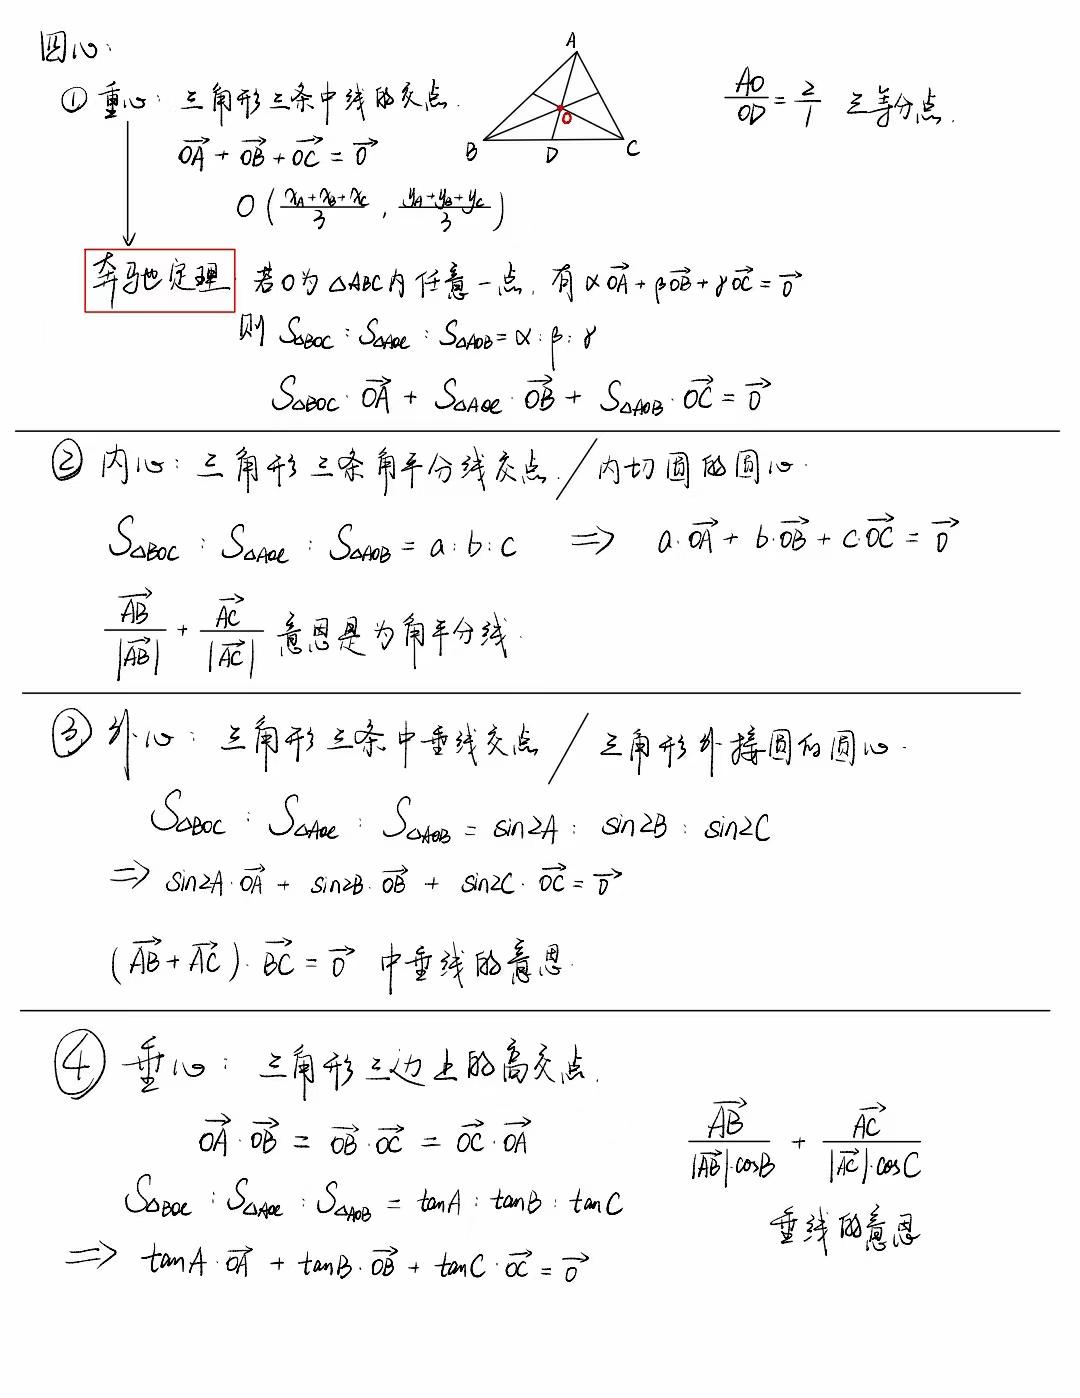 四心:
① 重心: 三角形三条中线的交点.
A
B
D
C
O
AO/OD = 2/1 三等分点.
→OA + →OB + →OC = →0
O ( (x_A+x_B+x_C)/3 , (y_A+y_B+y_C)/3 )
奔驰定理 若O为△ABC内任意一点, 有 α→OA + β→OB + γ→OC = →0
则 S△BOC : S△AOC : S△AOB = α : β : γ
S△BOC · →OA + S△AOC · →OB + S△AOB · →OC = →0
② 内心: 三角形三条角平分线交点. / 内切圆的圆心.
S△BOC : S△AOC : S△AOB = a : b : c ⇒ a·→OA + b·→OB + c·→OC = →0
→AB/|→AB| + →AC/|→AC| 意思是为角平分线.
③ 外心: 三角形三条中垂线交点 / 三角形外接圆的圆心.
S△BOC : S△AOC : S△AOB = sin2A : sin2B : sin2C
⇒ sin2A·→OA + sin2B·→OB + sin2C·→OC = →0
(→AB + →AC)·→BC = →0 中垂线的意思.
④ 垂心: 三角形三边上的高交点.
→OA·→OB = →OB·→OC = →OC·→OA
→AB/(|→AB|·cosB) + →AC/(|→AC|·cosC)
S△BOC : S△AOC : S△AOB = tanA : tanB : tanC
垂线的意思
⇒ tanA·→OA + tanB·→OB + tanC·→OC = →0